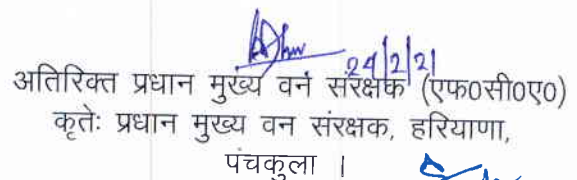 24/2/21
अतिरिक्त प्रधान मुख्य वन संरक्षक (एफ0सी0ए0)
कृतेः प्रधान मुख्य वन संरक्षक, हरियाणा,
पंचकुला ।